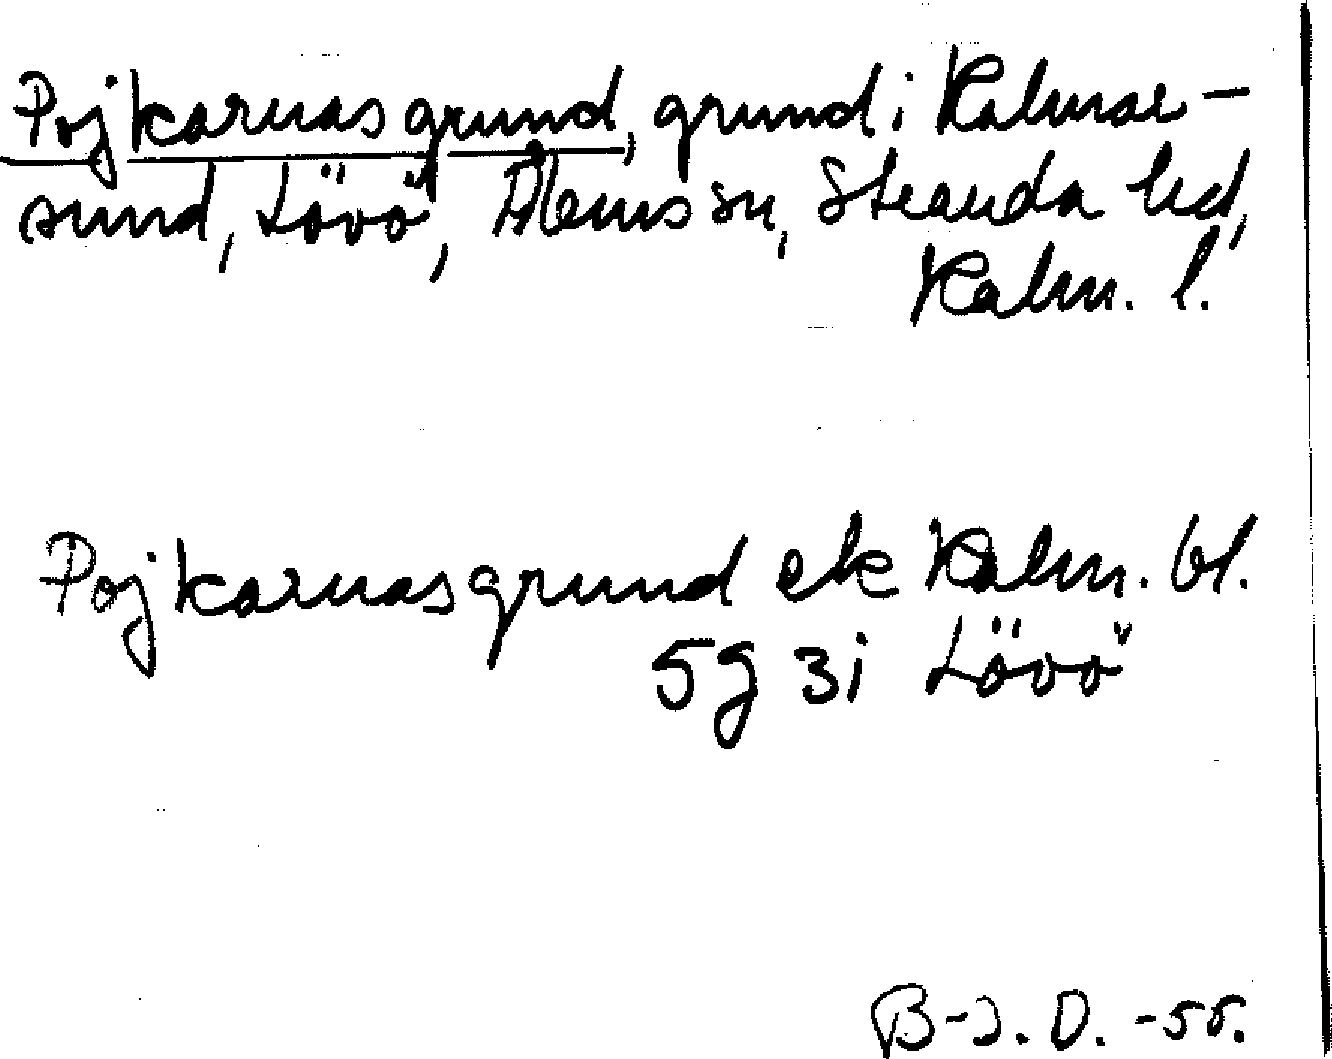 Pojkarnas grund, grund i Kalmar-
sund, Lövö, Ålems sn, Stranda hd,
Kalm. l.
Pojkarnas grund ek Kalm. bl.
5g 3i Lövö
B-J. D. -55.